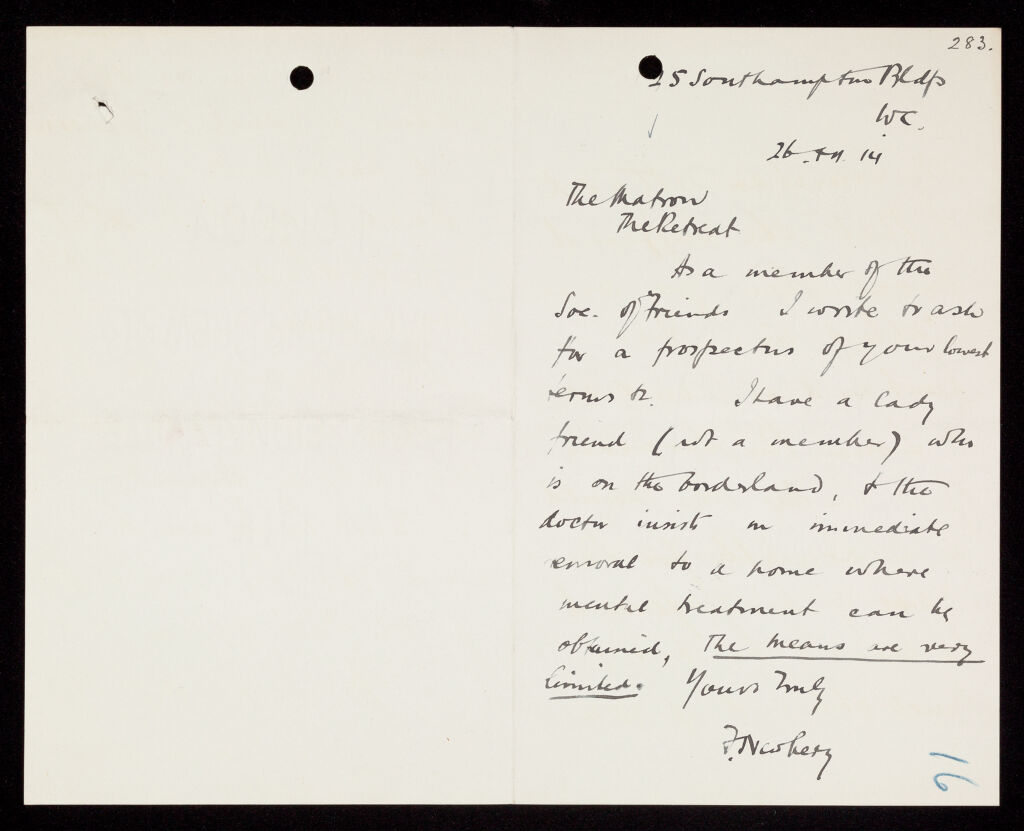 283.
25 Southampton Bldgs
WC.
26. 14
The Matron
The Retreat
As a member of the
Soc. of Friends I write to ask
for a prospectus of your lowest
terms &c. I have a lady
friend (not a member) who
is on the borderland, & the
doctor insists on immediate
removal to a home where
mental treatment can be
obtained, the means are very
limited. Yours Truly
F. Newbery
16